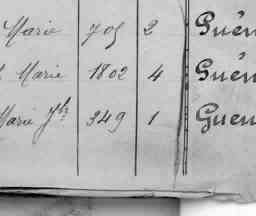 Marie 705 2 Guén
Marie 1802 4 Guén
Marie Jh 349 1 Guen